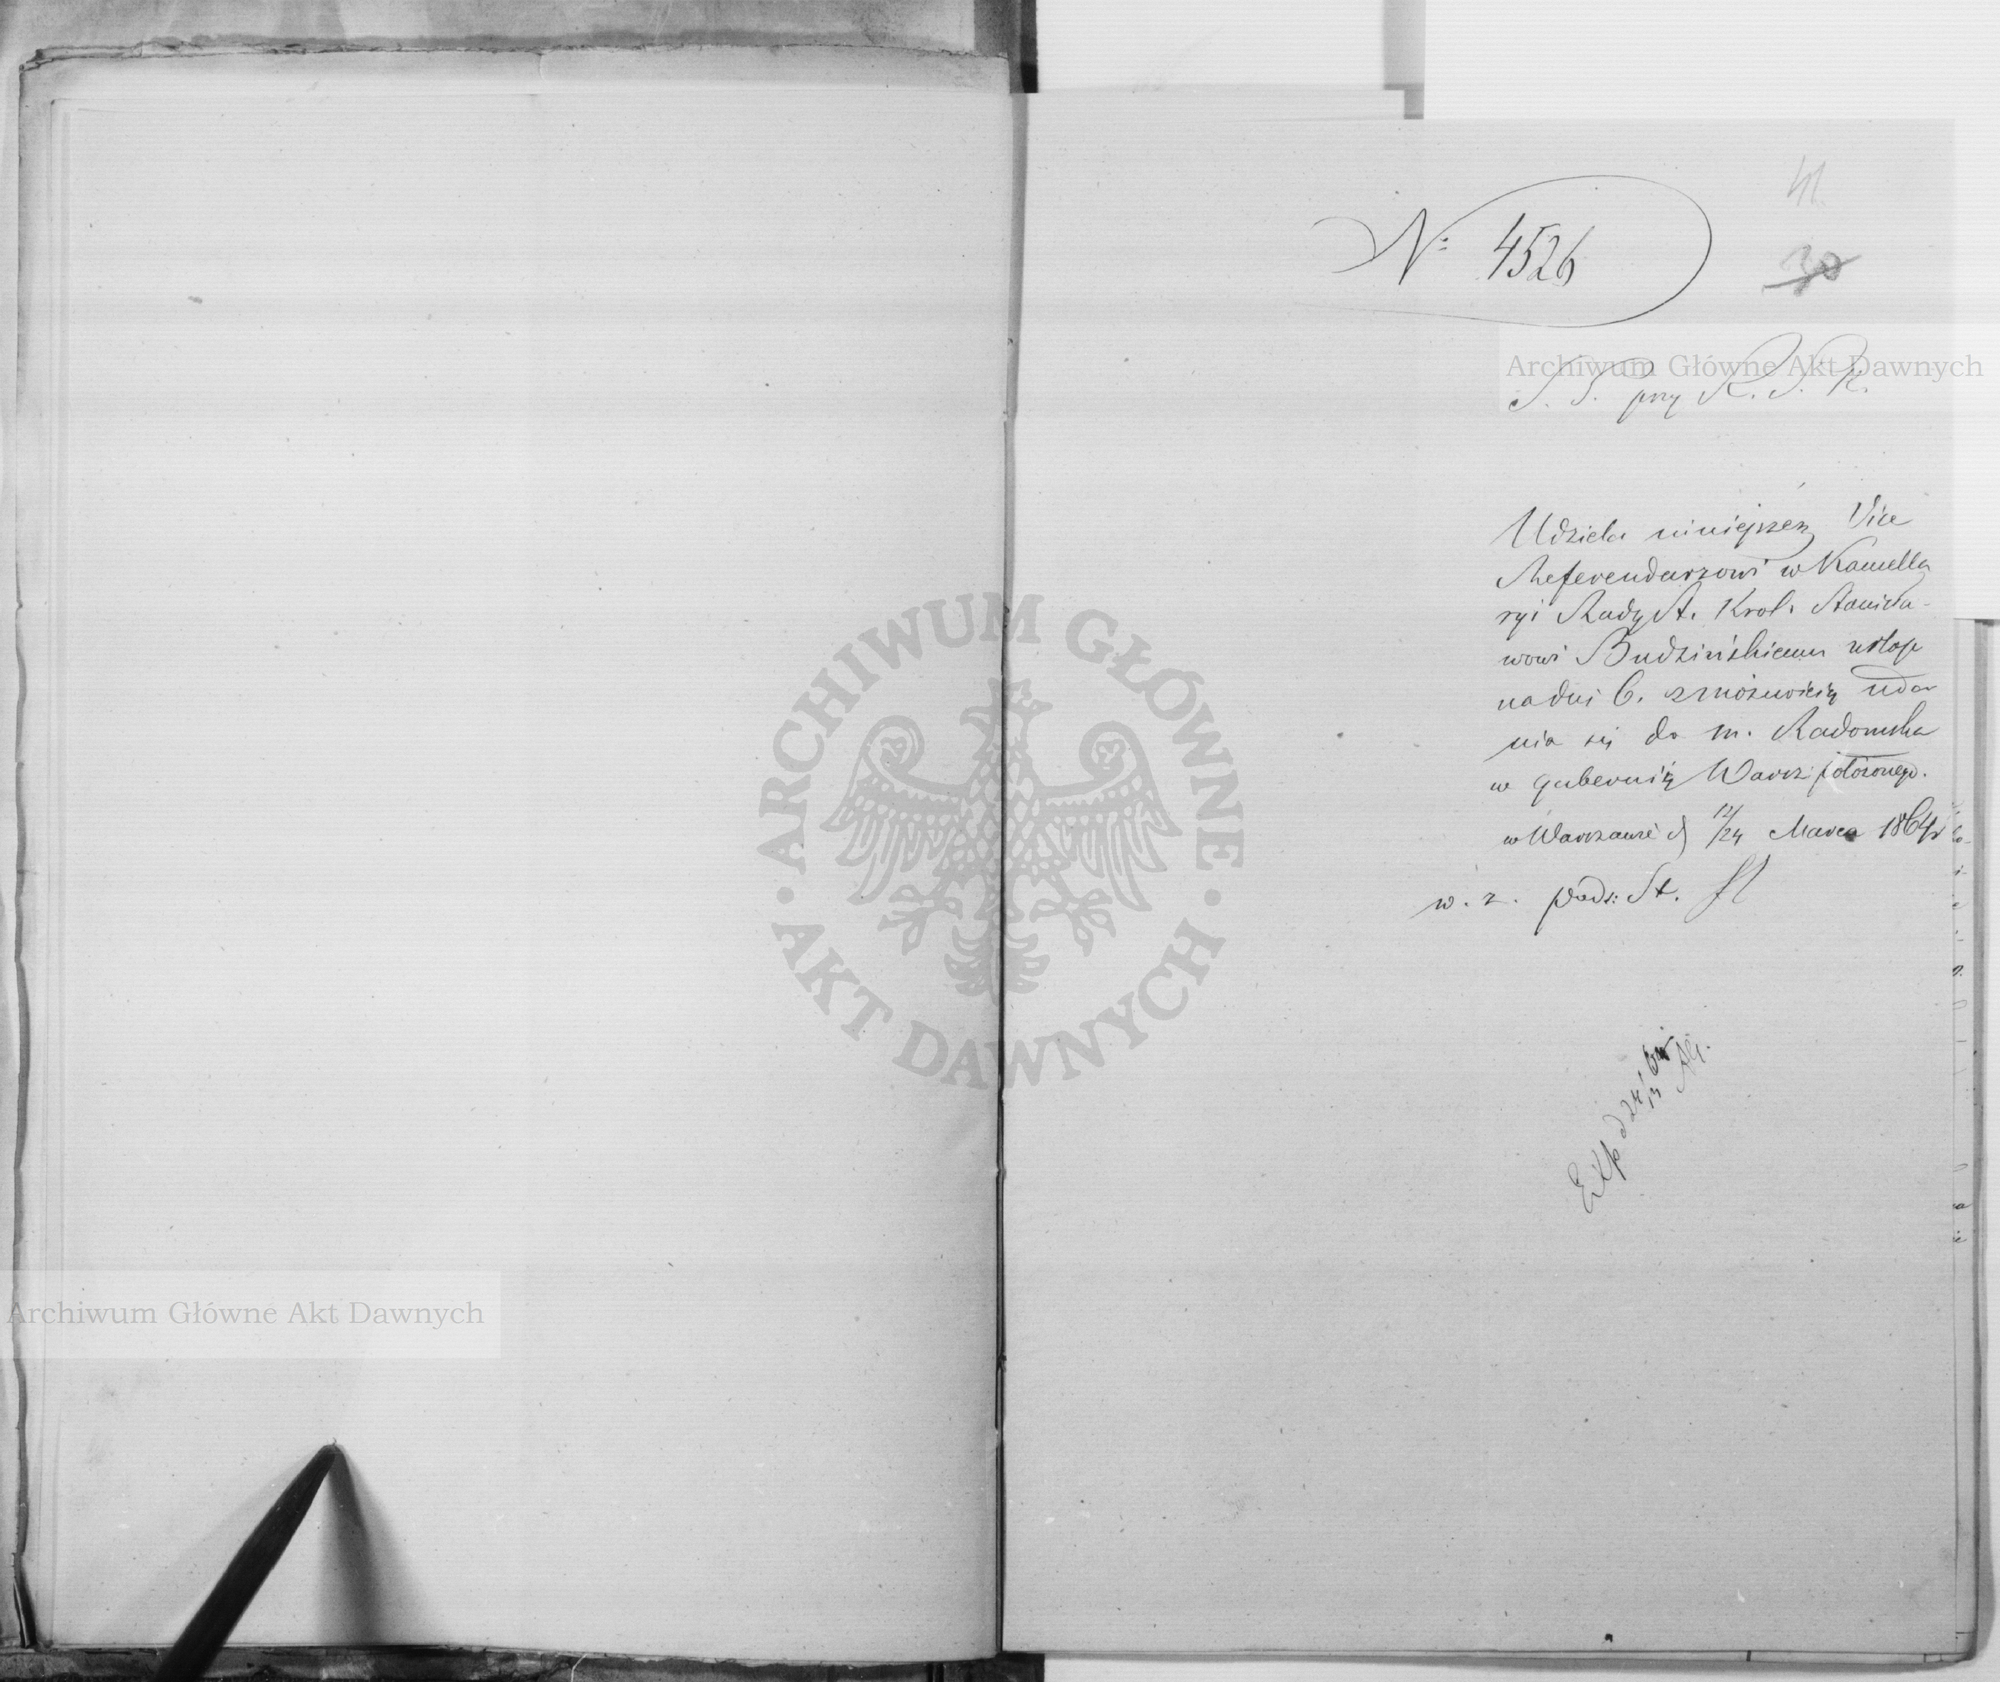 41.
30
N: 4526
S. S. przy R. S. K.
Udziela niniejszem Vice
Referendarzowi w Kancella
ryi Rady St. Król. Stanisła-
wowi Budzińskiemu urlop
na dni 6. z możnością uda
nia się do m. Radomska
w gubernii Warsz: położonego.
w Warszawie d 12/24 Marca 1864 r
w. z. pods: St.
Exp d 24/
Archiwum Główne Akt Dawnych
ARCHIWUM GŁÓWNE
AKT DAWNYCH
Archiwum Główne Akt Dawnych